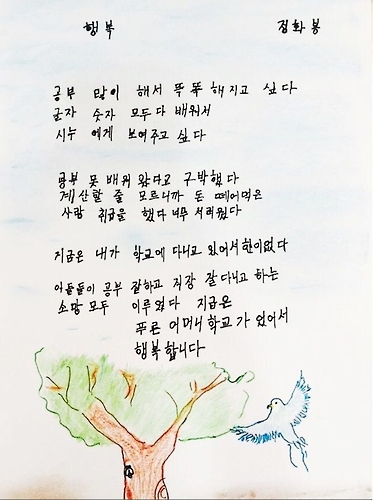 행복 정화봉
공부 많이 해서 똑똑 해지고 싶다
글자 숫자 모두다 배워서
시누 에게 보여주고 싶다
공부 못 배워 왔다고 구박했다
계산할 줄 모르니까 돈 떼어먹은
사람 취급을 했다 너무 서러웠다
지금은 내가 학교에 다니고 있어서 한이없다
아들들이 공부 잘하고 직장 잘 다니고 하는
소망 모두 이루었다 지금은
푸른 어머니 학교가 있어서
행복합니다